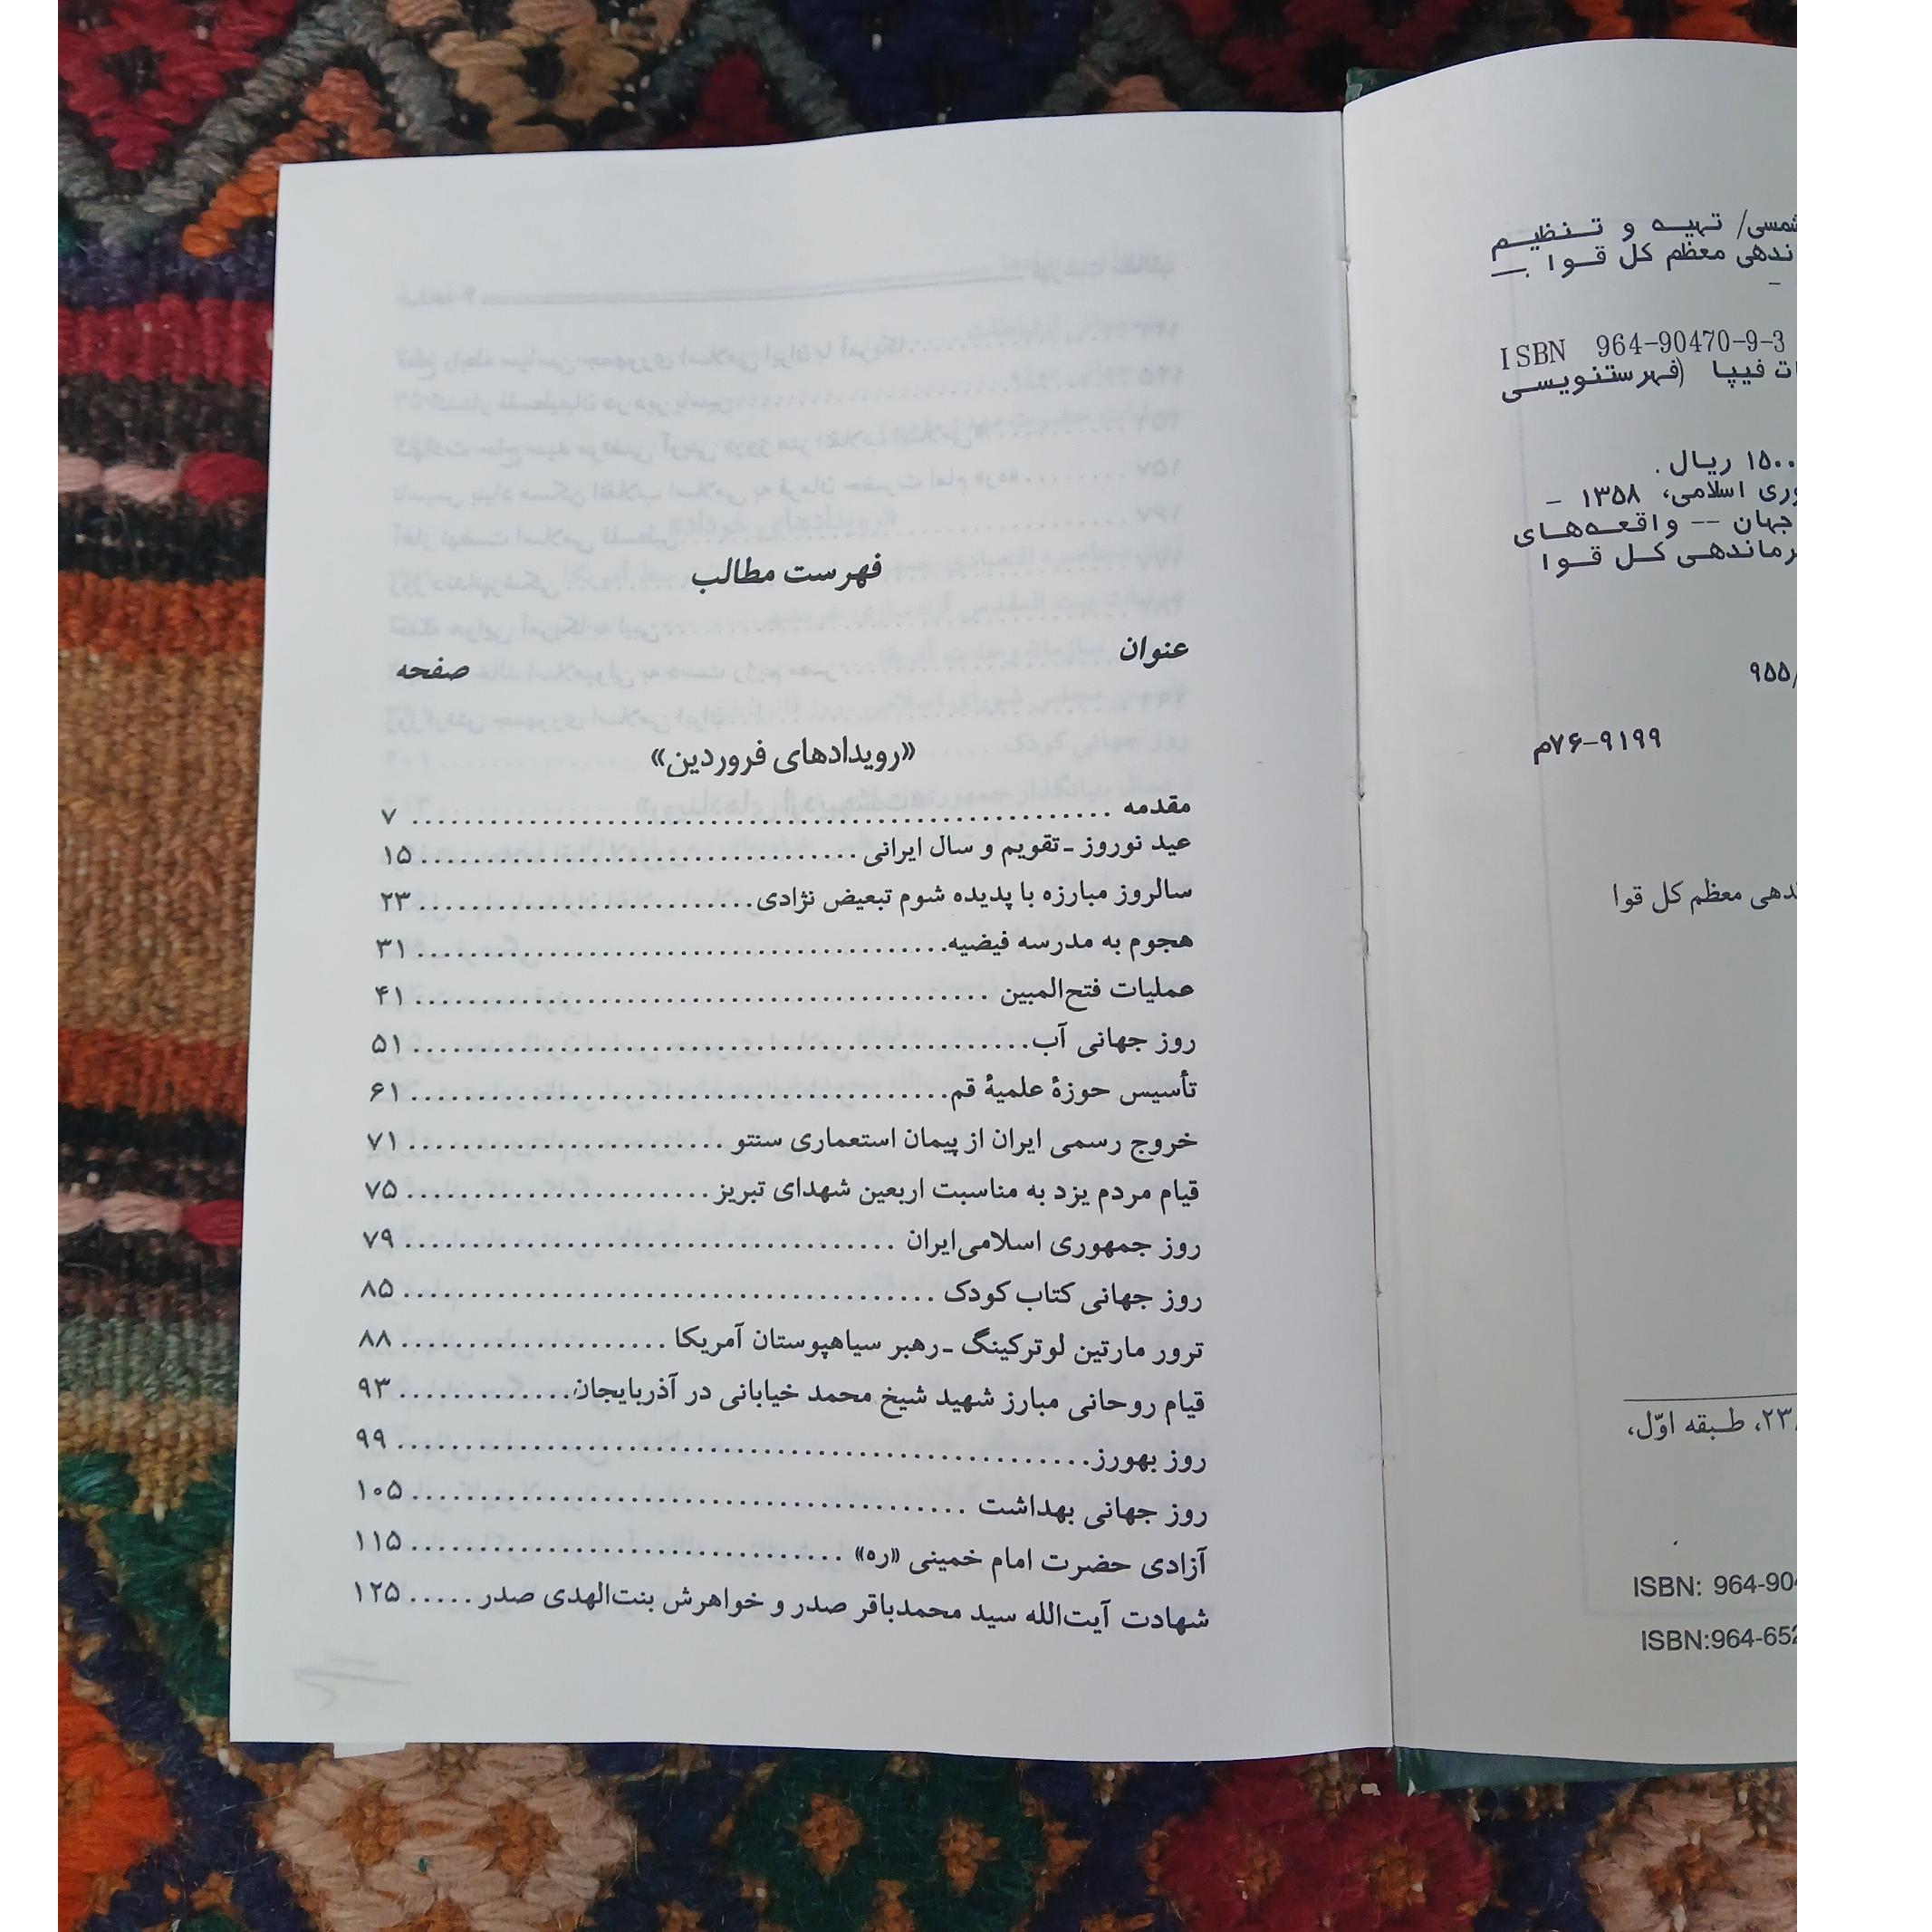 شمسی/ تهیه و تنظیم
ندهی معظم کل قوا . —
ISBN 964-90470-9-3
فیپا (فهرستنویسی
۱۵۰۰ ریال .
وری اسلامی، ۱۳۵۸ –
جهان -- واقعه‌های
رماندهی کل قوا
۹۵۵/
۷۶-۹۱۹۹م
ندهی معظم کل قوا
۲۳، طبقه اوّل،
ISBN: 964-904
ISBN:964-652
فهرست مطالب
عنوان صفحه
«رویدادهای فروردین»
مقدمه ........ ۷
عید نوروز ـ تقویم و سال ایرانی ........ ۱۵
سالروز مبارزه با پدیده شوم تبعیض نژادی ........ ۲۳
هجوم به مدرسه فیضیه ........ ۳۱
عملیات فتح‌المبین ........ ۴۱
روز جهانی آب ........ ۵۱
تأسیس حوزهٔ علمیهٔ قم ........ ۶۱
خروج رسمی ایران از پیمان استعماری سنتو ........ ۷۱
قیام مردم یزد به مناسبت اربعین شهدای تبریز ........ ۷۵
روز جمهوری اسلامی‌ایران ........ ۷۹
روز جهانی کتاب کودک ........ ۸۵
ترور مارتین لوترکینگ ـ رهبر سیاهپوستان آمریکا ........ ۸۸
قیام روحانی مبارز شهید شیخ محمد خیابانی در آذربایجان ........ ۹۳
روز بهورز ........ ۹۹
روز جهانی بهداشت ........ ۱۰۵
آزادی حضرت امام خمینی «ره» ........ ۱۱۵
شهادت آیت‌الله سید محمدباقر صدر و خواهرش بنت‌الهدی صدر ..... ۱۲۵